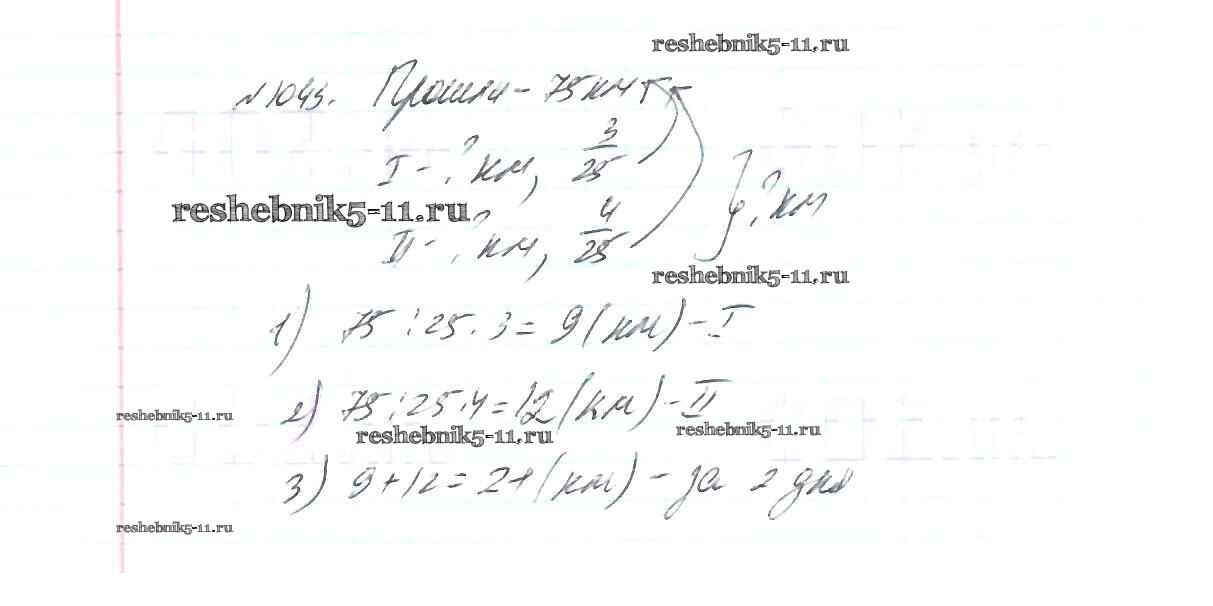 reshebnik5-11.ru
№1045. Прошли - 75 км
I - ? км, 3/25
reshebnik5-11.ru
} ? км
II - ? км, 4/25
reshebnik5-11.ru
1) 75 : 25 · 3 = 9 (км) - I
2) 75 : 25 · 4 = 12 (км) - II
reshebnik5-11.ru
reshebnik5-11.ru
reshebnik5-11.ru
3) 9 + 12 = 21 (км) - за 2 дня
reshebnik5-11.ru